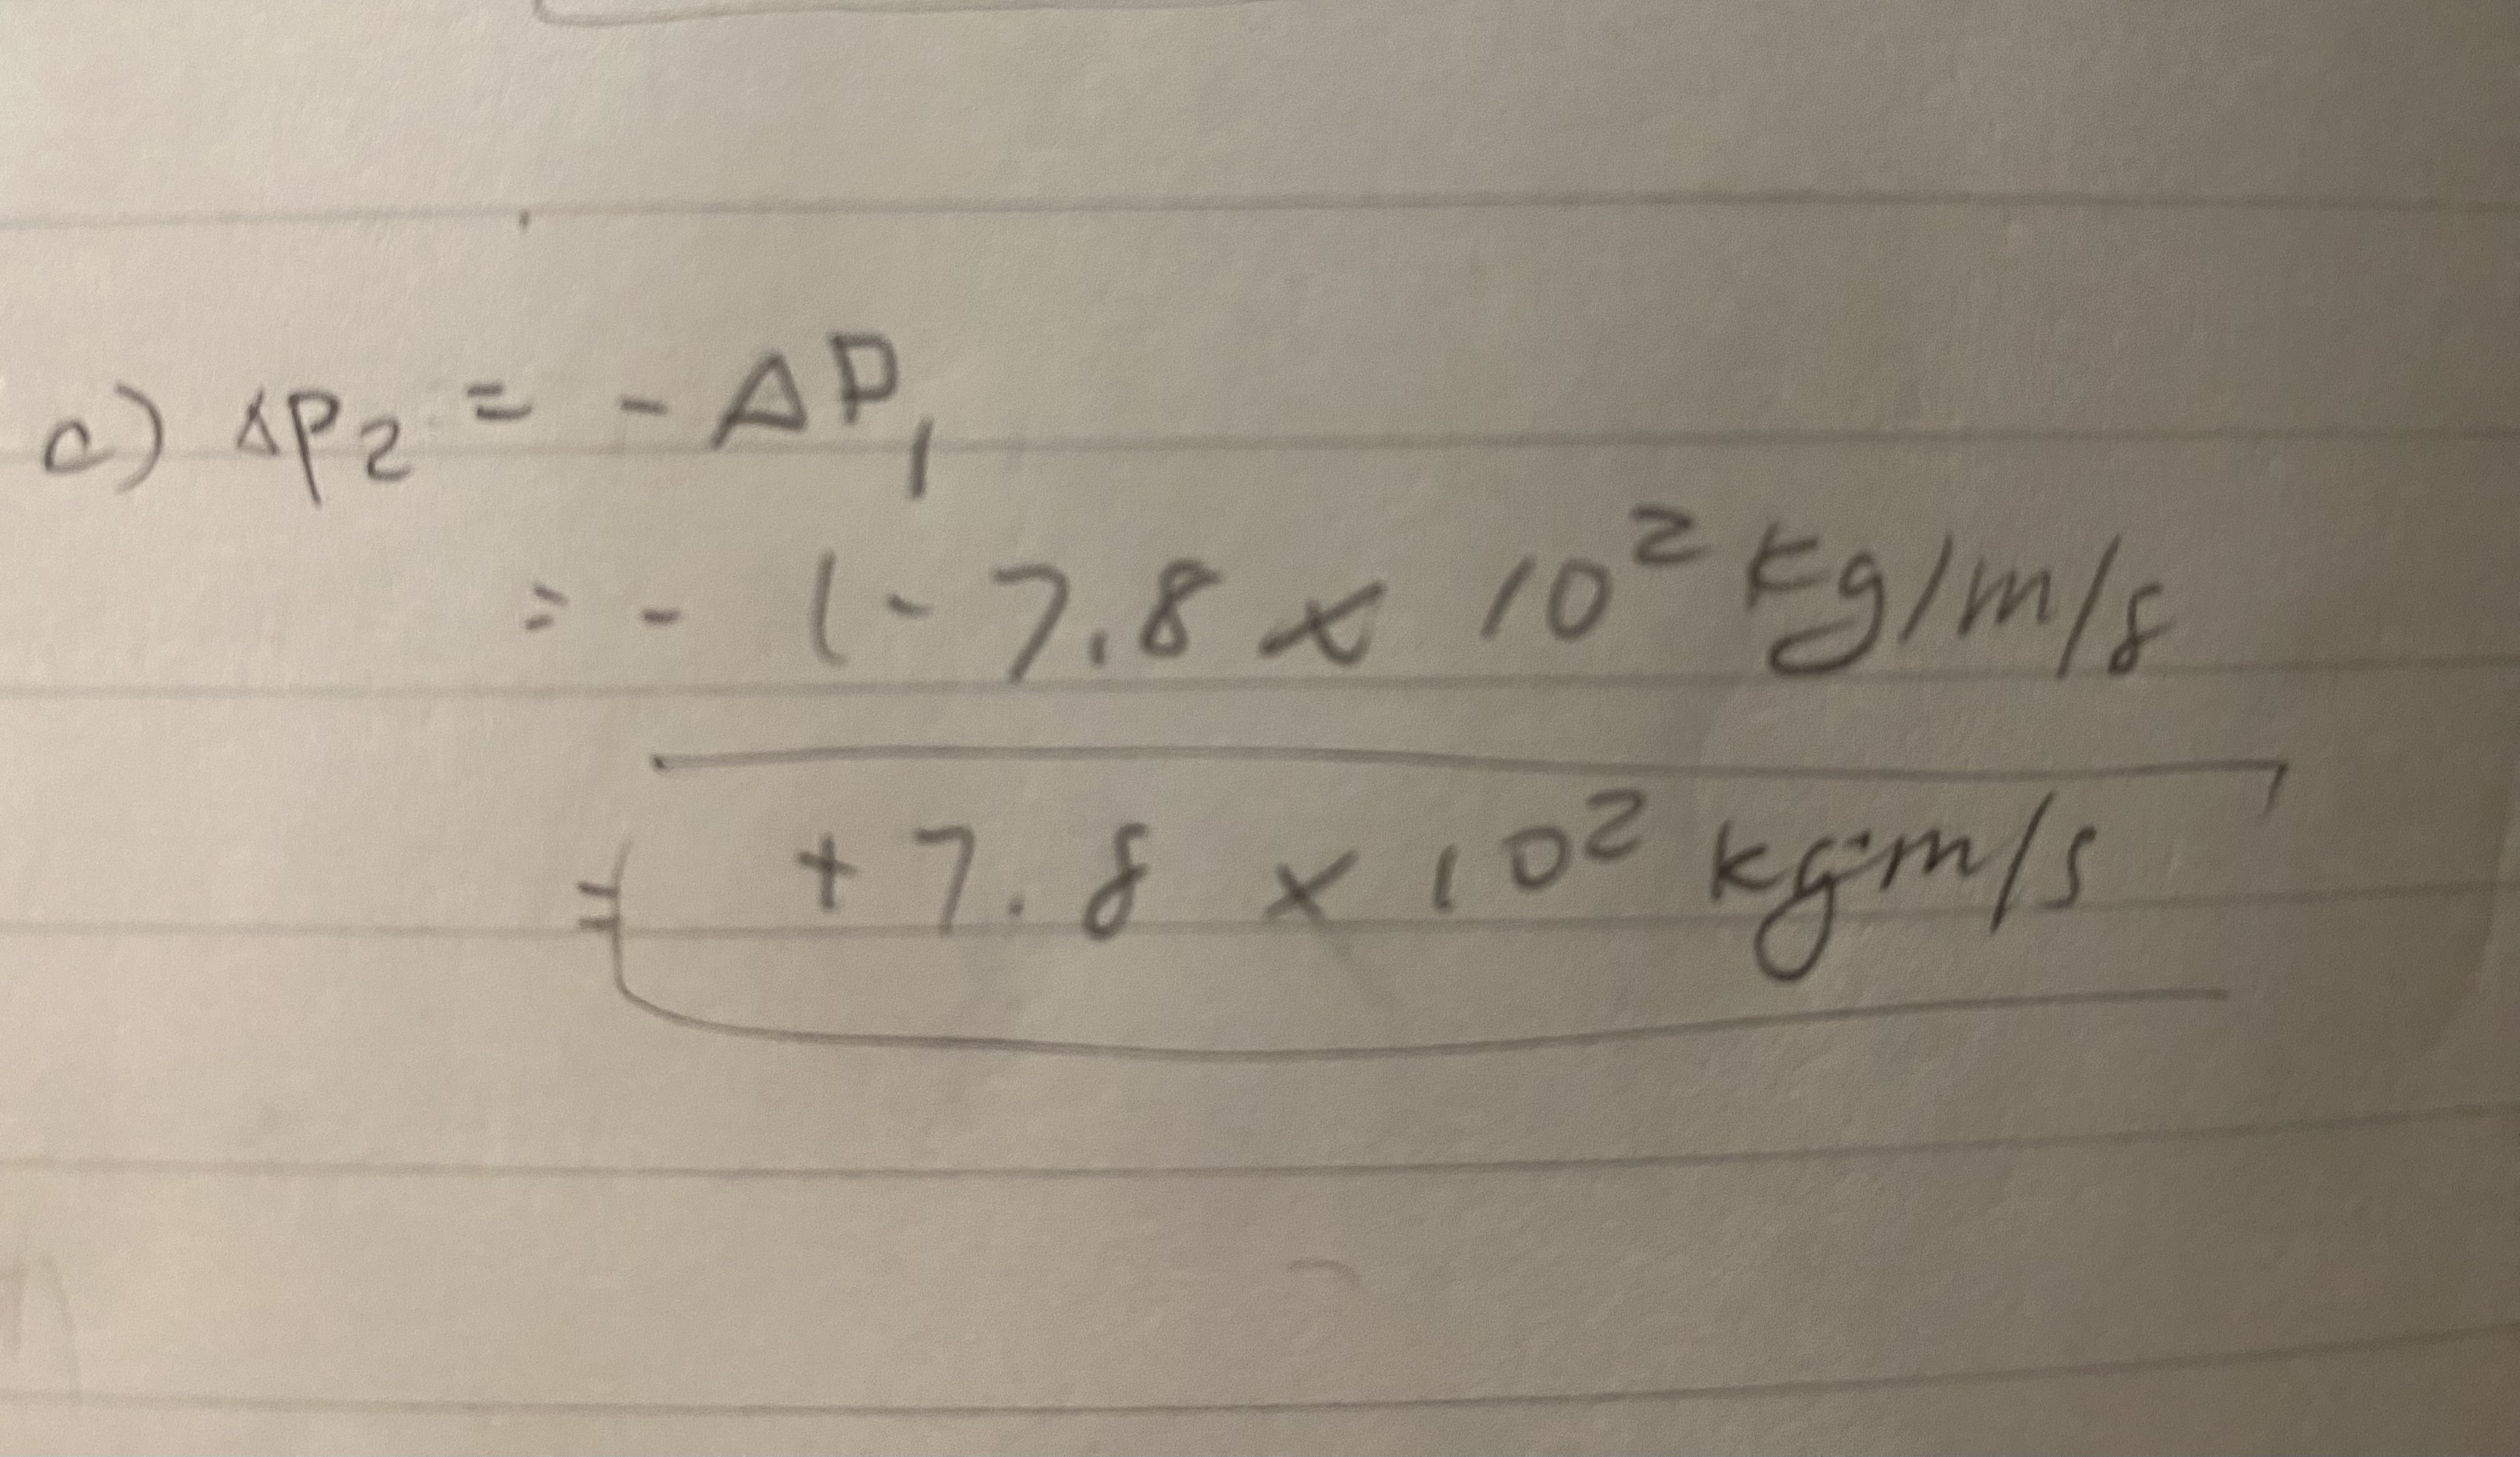 c) ΔP₂ = - ΔP₁
= - (- 7.8 × 10² kg/m/s
= + 7.8 × 10² kg·m/s